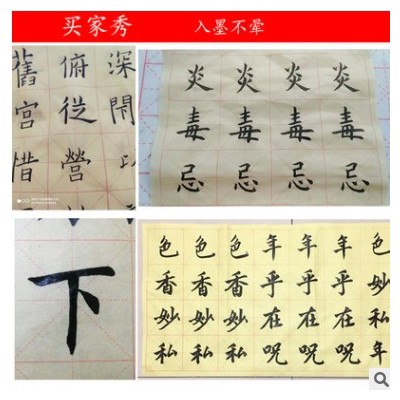 买家秀 入墨不晕
舊 俯 深
宫 從
惜 營
炎 炎 炎 炎
毒 毒 毒 毒
忌 忌 忌 忌
下
色 色 色 年 年 年 色
香 香 香 乎 乎 乎 香
妙 妙 妙 在 在 在 妙
私 私 私 呪 呪 呪 年